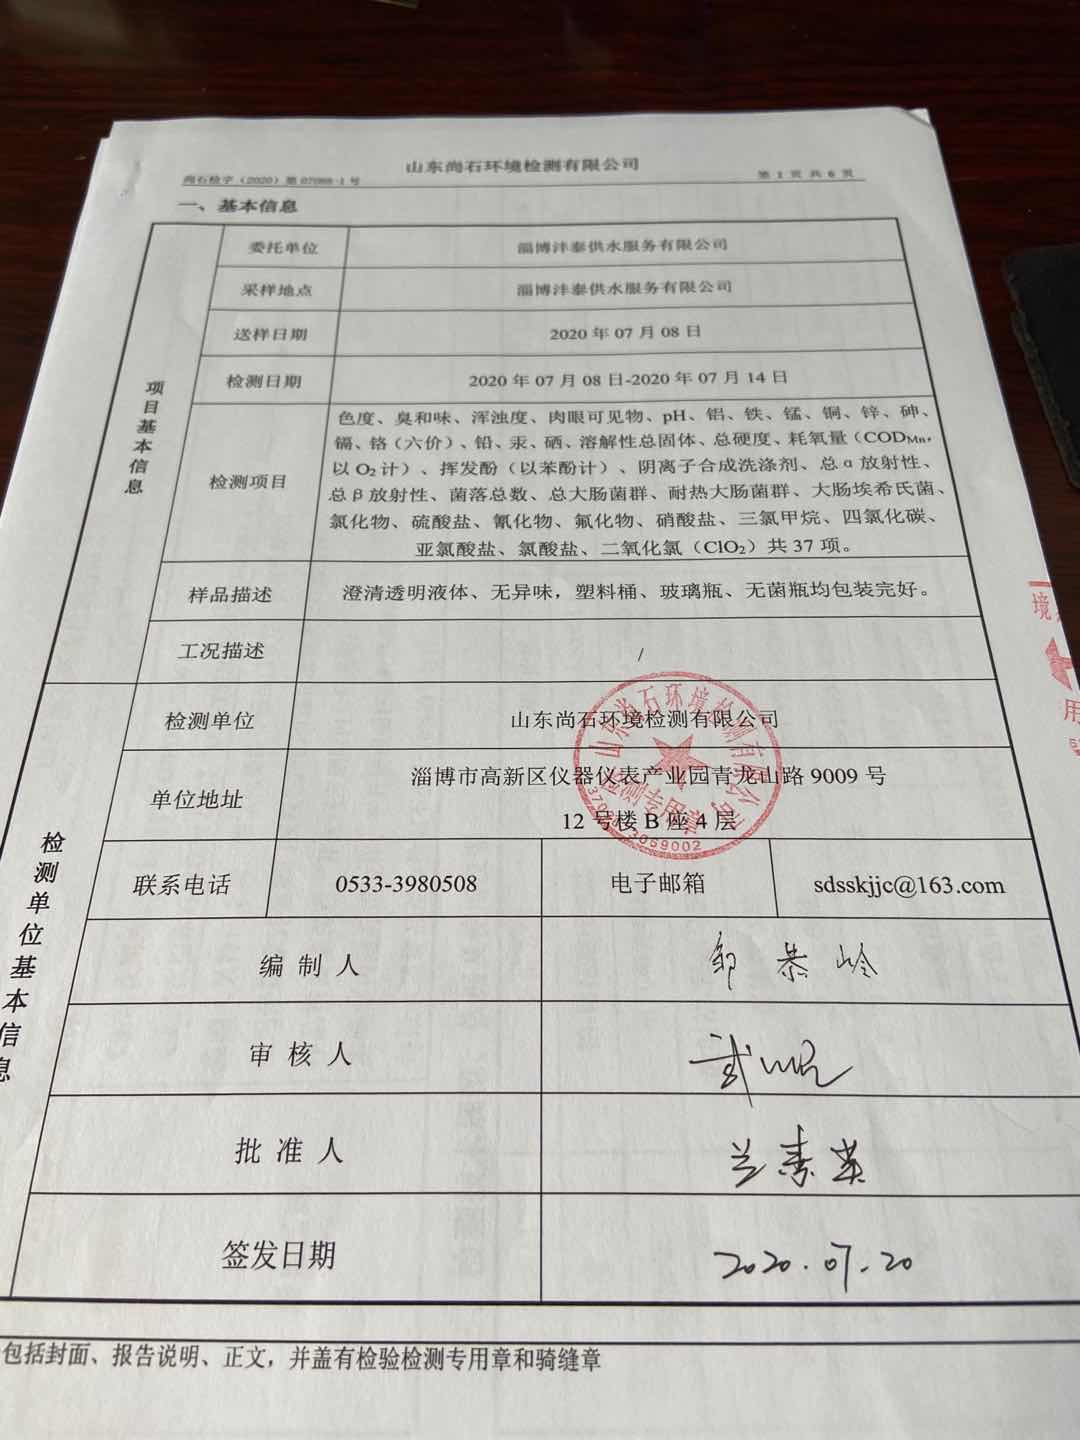 山东尚石环境检测有限公司
尚石检字（2020）第07088-1号
第 1 页 共 6 页
一、基本信息
项目基本信息
委托单位 淄博沣泰供水服务有限公司
采样地点 淄博沣泰供水服务有限公司
送样日期 2020 年 07 月 08 日
检测日期 2020 年 07 月 08 日-2020 年 07 月 14 日
检测项目
色度、臭和味、浑浊度、肉眼可见物、pH、铝、铁、锰、铜、锌、砷、
镉、铬（六价）、铅、汞、硒、溶解性总固体、总硬度、耗氧量（CODMn，
以 O₂ 计）、挥发酚（以苯酚计）、阴离子合成洗涤剂、总 α 放射性、
总 β 放射性、菌落总数、总大肠菌群、耐热大肠菌群、大肠埃希氏菌、
氯化物、硫酸盐、氰化物、氟化物、硝酸盐、三氯甲烷、四氯化碳、
亚氯酸盐、氯酸盐、二氧化氯（ClO₂）共 37 项。
样品描述 澄清透明液体、无异味，塑料桶、玻璃瓶、无菌瓶均包装完好。
工况描述 /
检测单位基本信息
检测单位 山东尚石环境检测有限公司
单位地址 淄博市高新区仪器仪表产业园青龙山路 9009 号
12 号楼 B 座 4 层
山东尚石环境检测有限公司
检测专用章
联系电话 0533-3980508 电子邮箱 sdsskjjc@163.com
编 制 人 邹恭岭
审 核 人
批 准 人 兰素英
签发日期 2020.07.20
包括封面、报告说明、正文，并盖有检验检测专用章和骑缝章